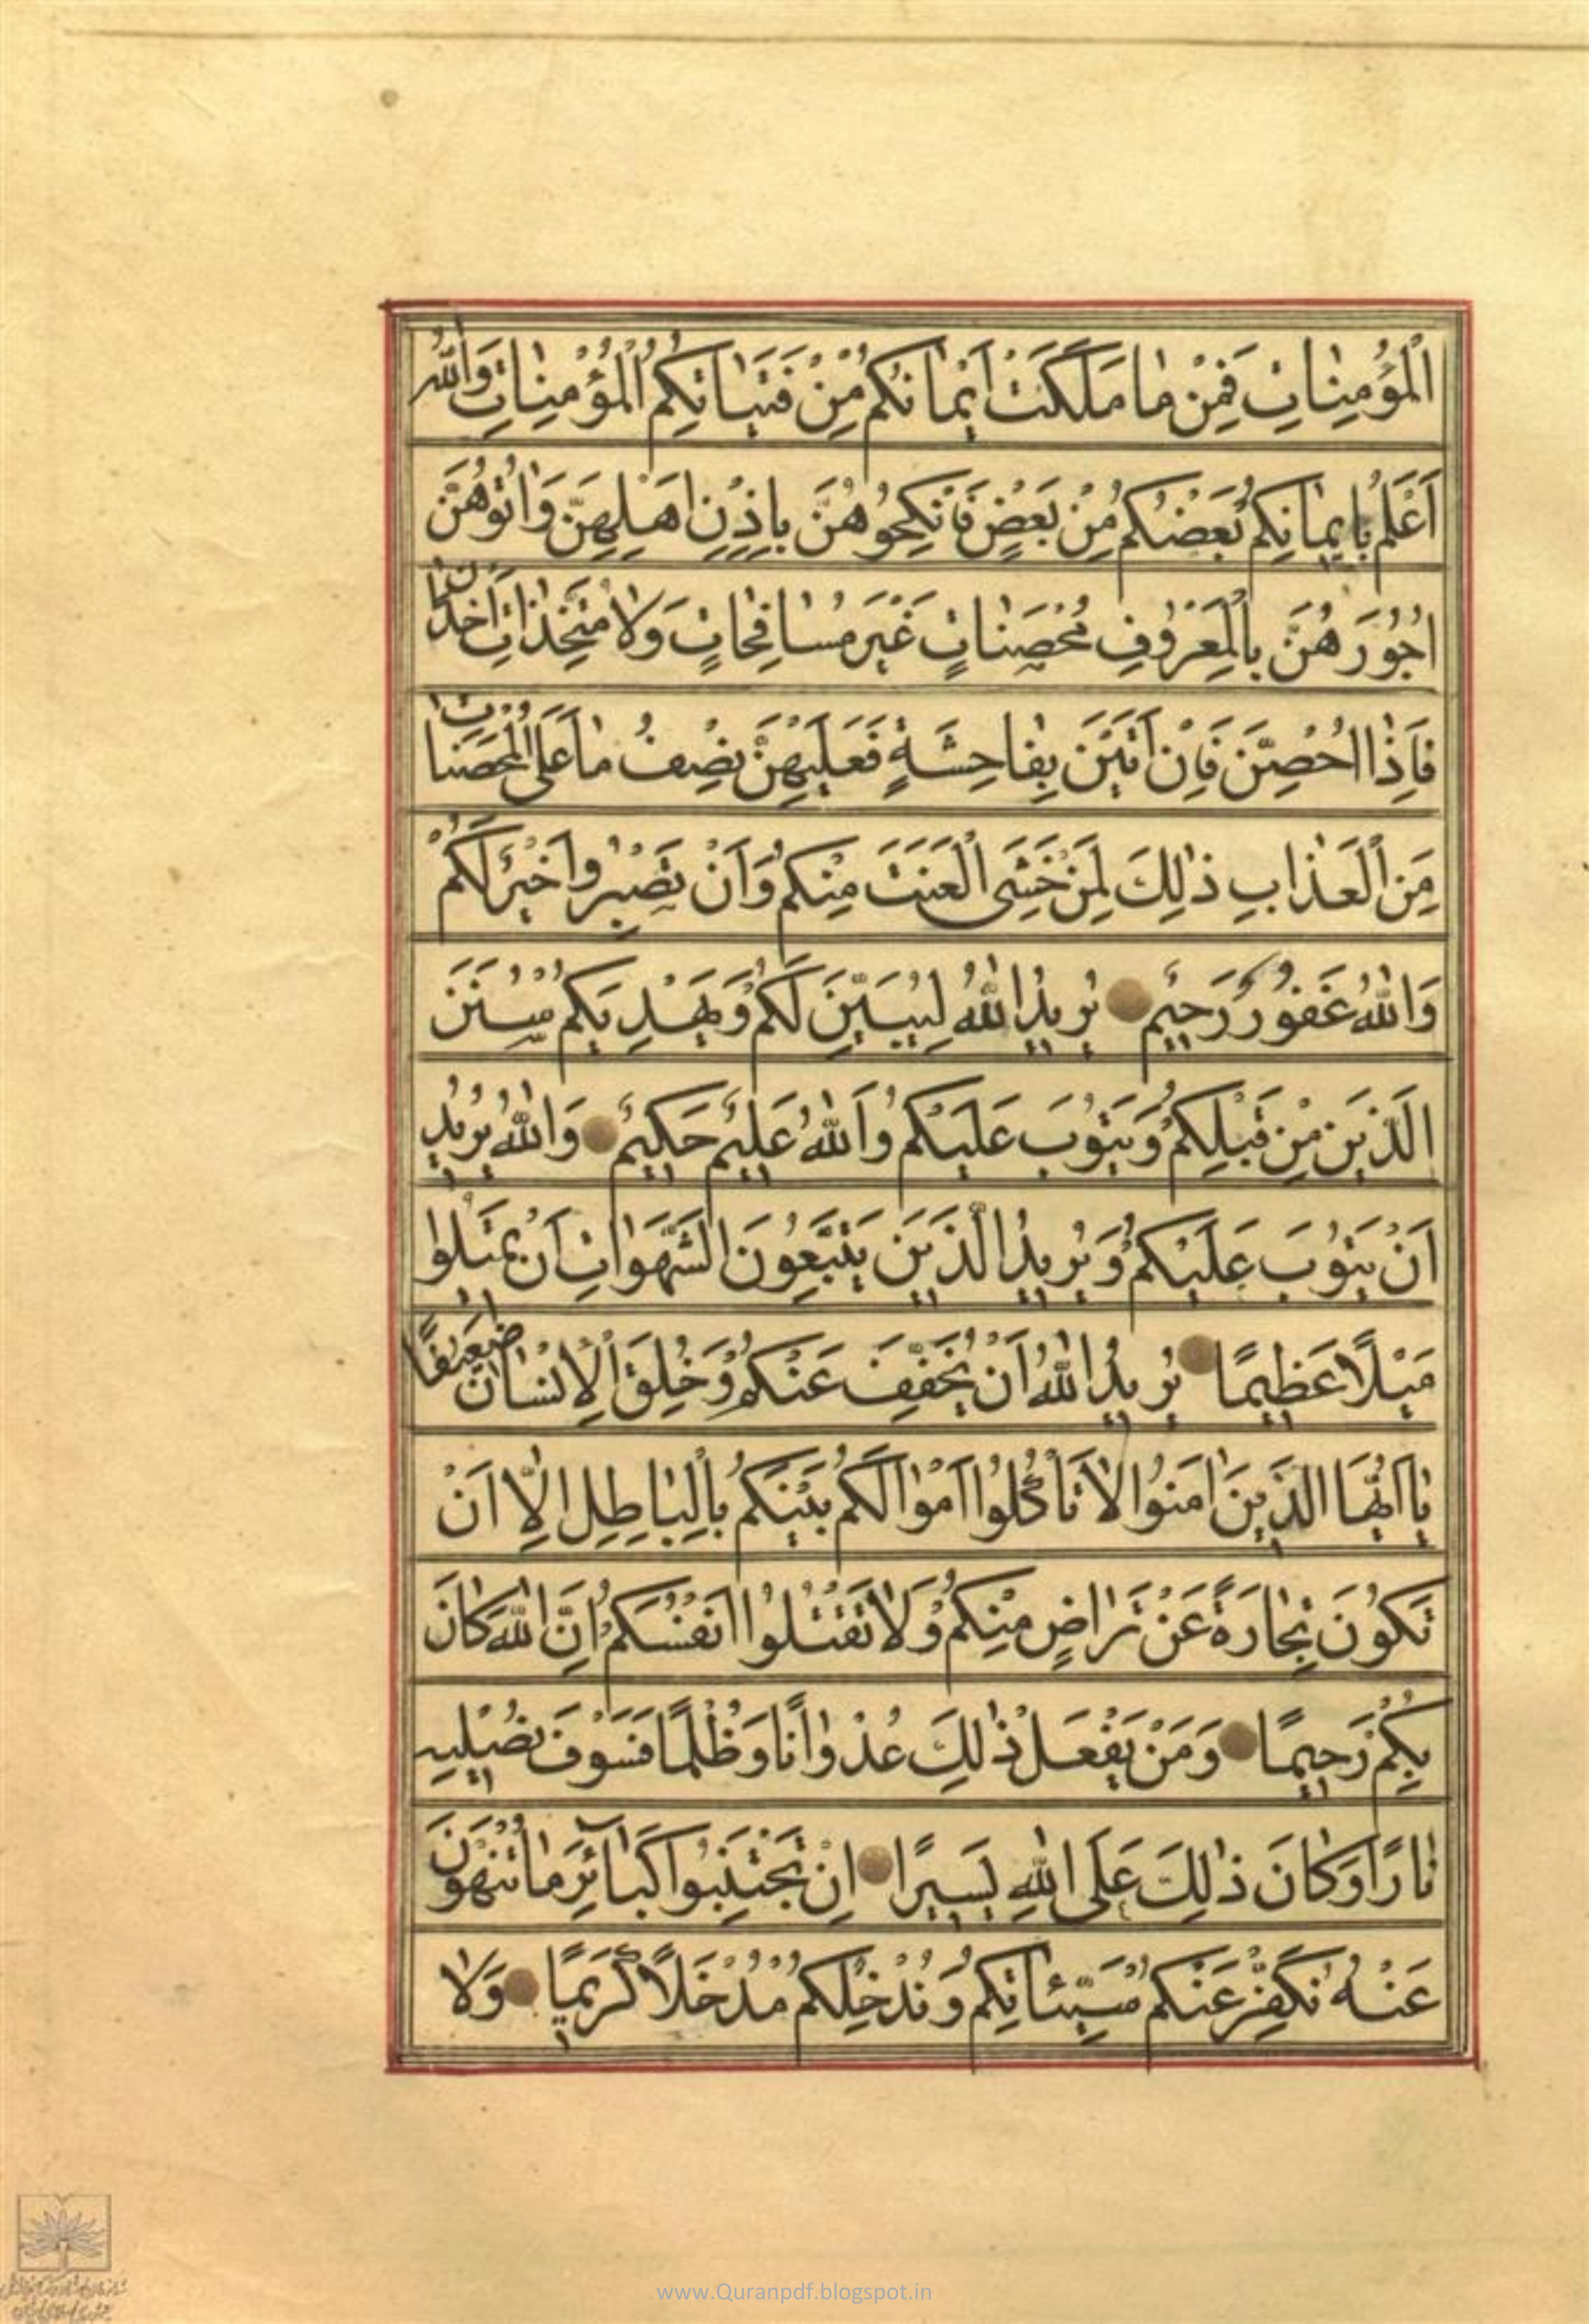 الْمُؤْمِنٰاتِ فَمِنْ مٰا مَلَكَتْ اَيْمٰانُكُمْ مِنْ فَتَيٰاتِكُمُ الْمُؤْمِنٰاتِ وَاللّٰهُ
اَعْلَمُ بِايمٰانِكُمْ بَعْضُكُمْ مِنْ بَعْضٍ فَانْكِحُوهُنَّ بِاِذْنِ اَهْلِهِنَّ وَاٰتُوهُنَّ
اُجُورَهُنَّ بِالْمَعْرُوفِ مُحْصَنٰاتٍ غَيْرَ مُسٰافِحٰاتٍ وَلاٰ مُتَّخِذٰاتِ اَخْدٰانٍ
فَاِذٰا اُحْصِنَّ فَاِنْ اَتَيْنَ بِفٰاحِشَةٍ فَعَلَيْهِنَّ نِصْفُ مٰا عَلَى الْمُحْصَنٰاتِ
مِنَ الْعَذٰابِ ذٰلِكَ لِمَنْ خَشِىَ الْعَنَتَ مِنْكُمْ وَاَنْ تَصْبِرُوا خَيْرٌ لَكُمْ
وَاللّٰهُ غَفُورٌ رَحيمٌ يُريدُ اللّٰهُ لِيُبَيِّنَ لَكُمْ وَيَهْدِيَكُمْ سُنَنَ
الَّذينَ مِنْ قَبْلِكُمْ وَيَتُوبَ عَلَيْكُمْ وَاللّٰهُ عَليمٌ حَكيمٌ وَاللّٰهُ يُريدُ
اَنْ يَتُوبَ عَلَيْكُمْ وَيُريدُ الَّذينَ يَتَّبِعُونَ الشَّهَوٰاتِ اَنْ تَميلُوا
مَيْلًا عَظيمًا يُريدُ اللّٰهُ اَنْ يُخَفِّفَ عَنْكُمْ وَخُلِقَ الْاِنْسٰانُ ضَعيفًا
يٰا اَيُّهَا الَّذينَ اٰمَنُوا لاٰ تَأْكُلُوا اَمْوٰالَكُمْ بَيْنَكُمْ بِالْبٰاطِلِ اِلّٰا اَنْ
تَكُونَ تِجٰارَةً عَنْ تَرٰاضٍ مِنْكُمْ وَلاٰ تَقْتُلُوا اَنْفُسَكُمْ اِنَّ اللّٰهَ كٰانَ
بِكُمْ رَحيمًا وَمَنْ يَفْعَلْ ذٰلِكَ عُدْوٰانًا وَظُلْمًا فَسَوْفَ نُصْليهِ
نٰارًا وَكٰانَ ذٰلِكَ عَلَى اللّٰهِ يَسيرًا اِنْ تَجْتَنِبُوا كَبٰائِرَ مٰا تُنْهَوْنَ
عَنْهُ نُكَفِّرْ عَنْكُمْ سَيِّئٰاتِكُمْ وَنُدْخِلْكُمْ مُدْخَلًا كَريمًا وَلاٰ
www.Quranpdf.blogspot.in